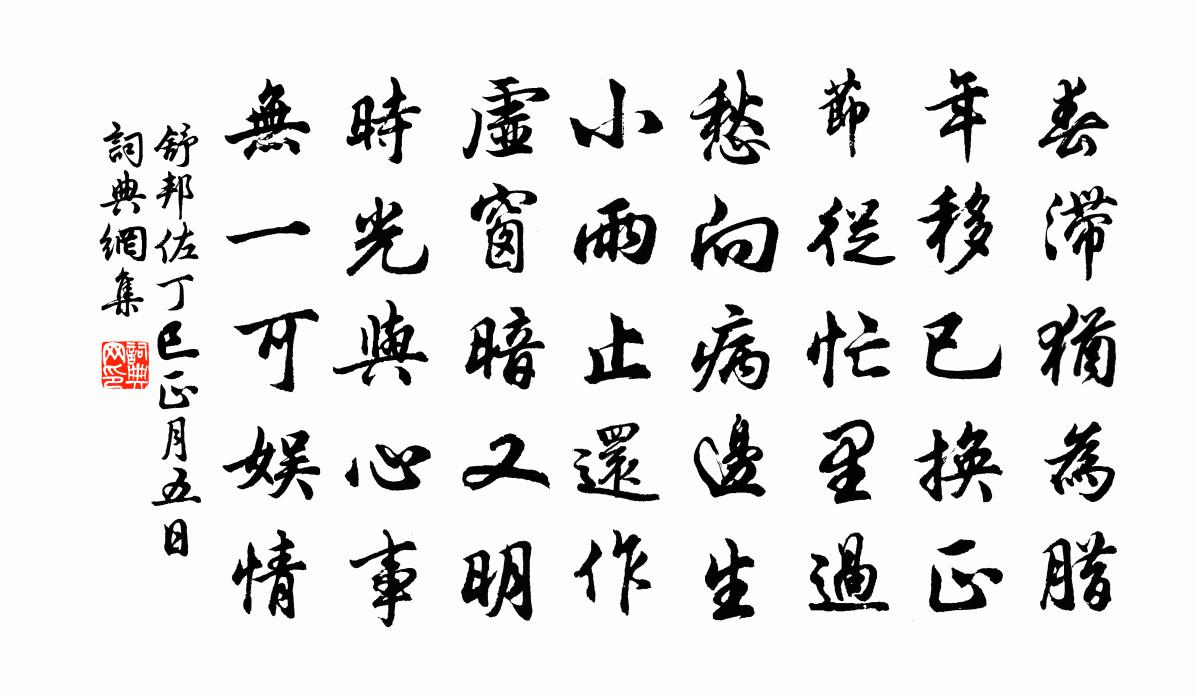 春滯猶為腊
年移已換正
節從忙里過
愁向病邊生
小雨止還作
虛窗暗又明
時光與心事
無一可娱情
舒邦佐丁巳正月五日
詞典網集
詞典
网印